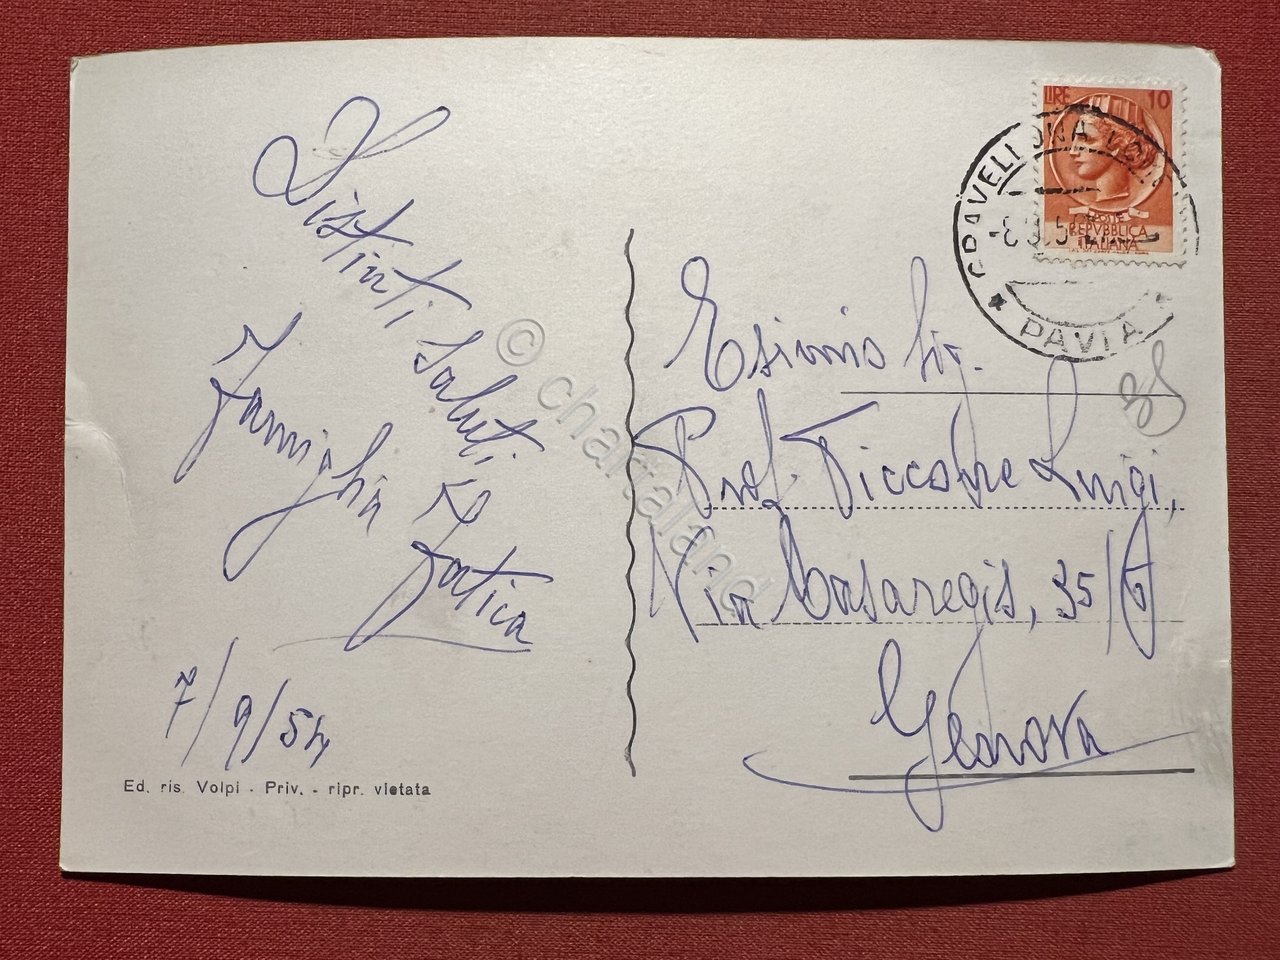 Distinti saluti
Famiglia Fatica
7/9/54
Ed. ris. Volpi - Priv. - ripr. vietata
LIRE 10
POSTE
REPVBBLICA
ITALIANA
GRAVELLONA
PAVIA
Esimio Sig.
Prof. Piccone Luigi,
Via Casaregis, 35/
Genova
© chartaland